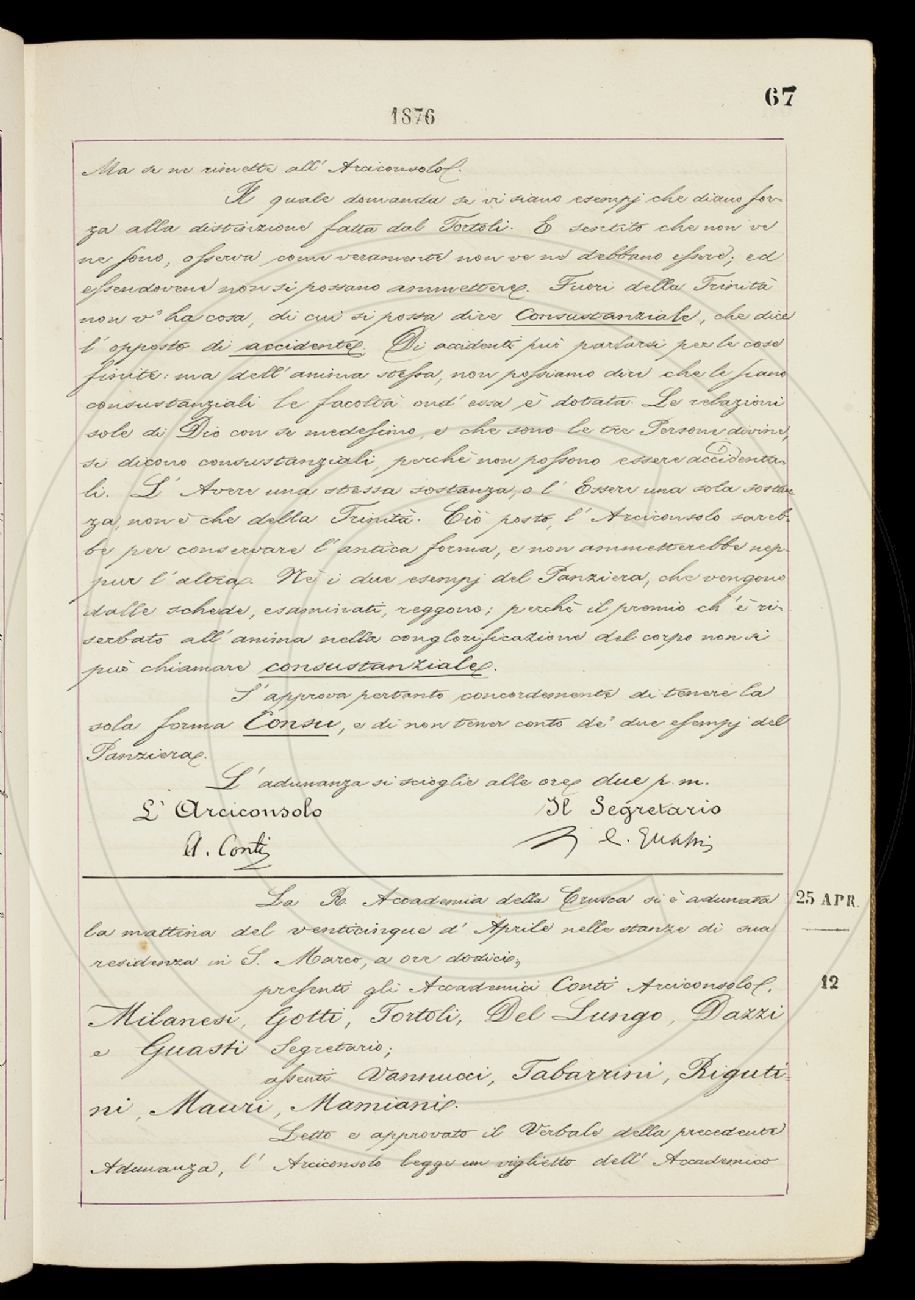 67
1876
Ma se ne rimette all' Arciconsolo.
Il quale domanda se vi siano esempj che diano for-
za alla distinzione fatta dal Tortoli. E sentito che non ve
ne sono, osserva come veramente non ve ne debbano essere; ed
essendovene non si possano ammettere. Fuori della Trinità
non v' ha cosa, di cui si possa dire Consustanziale, che dice
l' opposto di accidente. Di accidenti può parlarsi per le cose
finite: ma dell' anima stessa, non possiamo dire che le siano
consustanziali le facoltà ond' essa è dotata. Le relazioni
sole di Dio con se medesimo, e che sono le tre Persone divine,
si dicono consustanziali, perchè non possono essere accidenta-
li. L' Avere una stessa sostanza, o l' Essere una sola sostan
za, non è che della Trinità. Ciò posto, l' Arciconsolo sareb-
be per conservare l' antica forma, e non ammetterebbe nep-
pur l' altra. Nè i due esempj del Panziera, che vengono
dalle schede, esaminati, reggono; perchè il premio ch' è ri-
serbato all' anima nella conglorificazione del corpo non si
può chiamare consustanziale.
S' approva pertanto concordemente di tenere la
sola forma Consu, e di non tener conto de' due esempj del
Panziera.
L' adunanza si scioglie alle ore due p. m.
L' Arciconsolo Il Segretario
A. Conti C. Guasti
La R. Accademia della Crusca si è adunata 25 APR.
la mattina del venticinque d' Aprile nelle stanze di sua
residenza in S. Marco, a ore dodici,
presenti gli Accademici Conti Arciconsolo, 12
Milanesi, Gotti, Tortoli, Del Lungo, Dazzi
e Guasti Segretario;
assenti Vannucci, Tabarrini, Riguti-
ni, Mauri, Mamiani.
Letto e approvato il Verbale della precedente
Adunanza, l' Arciconsolo legge un viglietto dell' Accademico